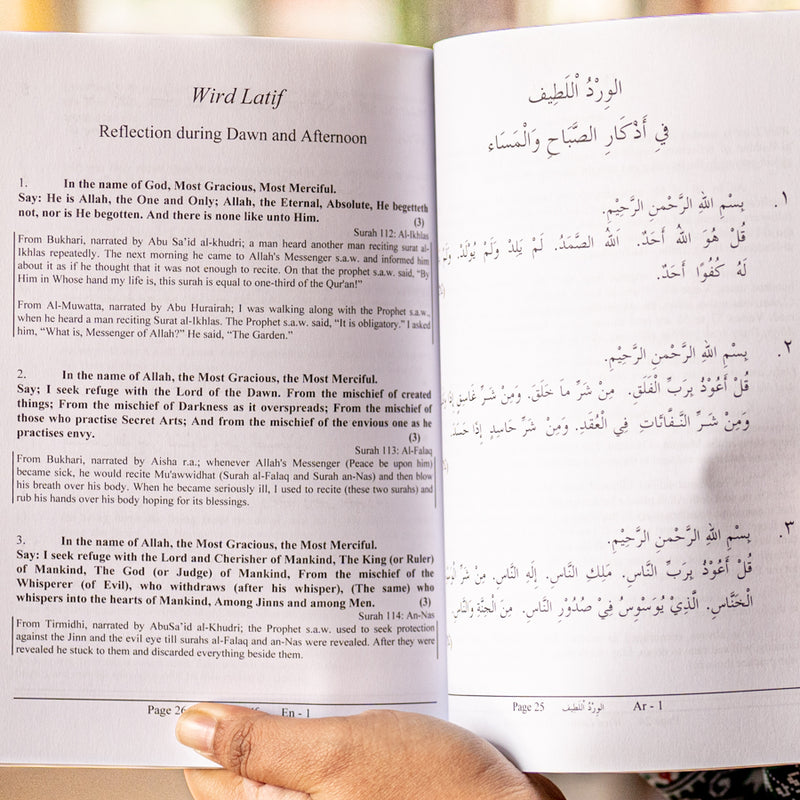 Wird Latif
Reflection during Dawn and Afternoon
1. In the name of God, Most Gracious, Most Merciful.
Say: He is Allah, the One and Only; Allah, the Eternal, Absolute, He begetteth
not, nor is He begotten. And there is none like unto Him. (3)
Surah 112: Al-Ikhlas
From Bukhari, narrated by Abu Sa’id al-khudri; a man heard another man reciting surat al-
Ikhlas repeatedly. The next morning he came to Allah's Messenger s.a.w. and informed him
about it as if he thought that it was not enough to recite. On that the prophet s.a.w. said, “By
Him in Whose hand my life is, this surah is equal to one-third of the Qur'an!”
From Al-Muwatta, narrated by Abu Hurairah; I was walking along with the Prophet s.a.w.,
when he heard a man reciting Surat al-Ikhlas. The Prophet s.a.w. said, “It is obligatory.” I asked
him, “What is, Messenger of Allah?” He said, “The Garden.”
2. In the name of Allah, the Most Gracious, the Most Merciful.
Say; I seek refuge with the Lord of the Dawn. From the mischief of created
things; From the mischief of Darkness as it overspreads; From the mischief of
those who practise Secret Arts; And from the mischief of the envious one as he
practises envy. (3)
Surah 113: Al-Falaq
From Bukhari, narrated by Aisha r.a.; whenever Allah's Messenger (Peace be upon him)
became sick, he would recite Mu'awwidhat (Surah al-Falaq and Surah an-Nas) and then blow
his breath over his body. When he became seriously ill, I used to recite (these two surahs) and
rub his hands over his body hoping for its blessings.
3. In the name of Allah, the Most Gracious, the Most Merciful.
Say: I seek refuge with the Lord and Cherisher of Mankind, The King (or Ruler)
of Mankind, The God (or Judge) of Mankind, From the mischief of the
Whisperer (of Evil), who withdraws (after his whisper), (The same) who
whispers into the hearts of Mankind, Among Jinns and among Men. (3)
Surah 114: An-Nas
From Tirmidhi, narrated by AbuSa’id al-Khudri; the Prophet s.a.w. used to seek protection
against the Jinn and the evil eye till surahs al-Falaq and an-Nas were revealed. After they were
revealed he stuck to them and discarded everything beside them.
Page 26 En - 1
الوِرْدُ اللَطِيف
فِي أَذْكَارِ الصَّبَاحِ وَالْمَسَاء
١. بِسْمِ اللهِ الرَّحْمنِ الرَّحِيْمِ.
قُلْ هُوَ اللهُ أَحَدٌ. اَللهُ الصَّمَدُ. لَمْ يَلِدْ وَلَمْ يُوْلَدْ.
لَهُ كُفُوًا أَحَدٌ.
٢. بِسْمِ اللهِ الرَّحْمنِ الرَّحِيْمِ.
قُلْ أَعُوْذُ بِرَبِّ الْفَلَقِ. مِنْ شَرِّ ماَ خَلَقَ. وَمِنْ شَرِّ غَاسِقٍ إِذَا
وَمِنْ شَرِّ النَّفَّاثَاتِ فِي الْعُقَدِ. وَمِنْ شَرِّ حَاسِدٍ إِذَا حَسَدَ.
٣. بِسْمِ اللهِ الرَّحْمنِ الرَّحِيْمِ.
قُلْ أَعُوْذُ بِرَبِّ النَّاسِ. مَلِكِ النَّاسِ. إِلَهِ النَّاسِ. مِنْ شَرِّ
الْخَنَّاسِ. الَّذِيْ يُوَسْوِسُ فِيْ صُدُوْرِ النَّاسِ. مِنَ الْجِنَّةِ وَالنَّاسِ.
Page 25 الوِرْدُ اللطيف Ar - 1